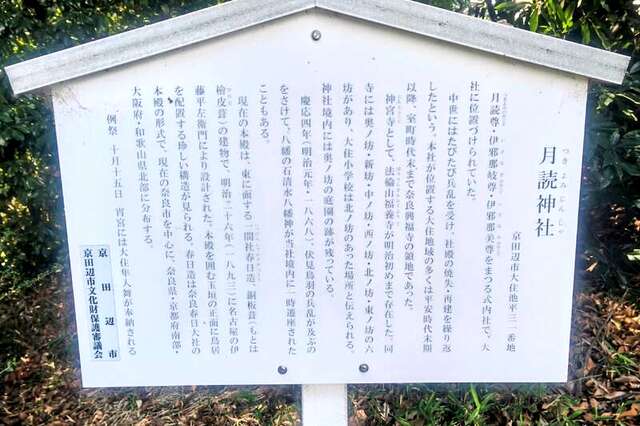 月読神社
つきよみじんじゃ
京田辺市大住池平三一番地
月読尊・伊邪那岐尊・伊邪那美尊をまつる式内社で、大
社に位置づけられていた。
中世にはたびたび兵乱を受け、社殿の焼失・再建を繰り返
したという。本社が位置する大住地域の多くは平安時代末期
以降、室町時代末まで奈良興福寺の領地であった。
神宮寺として、法輪山福養寺が明治初めまで存在した。同
寺には奥ノ坊・新坊・中ノ坊・西ノ坊・北ノ坊・東ノ坊の六
坊があり、大住小学校は北ノ坊のあった場所と伝えられる。
神社境内には奥ノ坊の庭園の跡が残っている。
慶応四年(明治元年・一八六八)、伏見鳥羽の兵乱が及ぶの
をさけて、八幡の石清水八幡神が当社境内に一時遷座された
こともある。
現在の本殿は、東に面する一間社春日造、銅板葺(もとは
檜皮葺)の建物で、明治二十六年(一八九三)に名古屋の伊
藤平左衛門により設計された。本殿を囲む玉垣の正面に鳥居
を配置する珍しい構造が見られる。春日造は奈良春日大社の
本殿の形式で、現在の奈良市を中心に、奈良県・京都府南部・
大阪府・和歌山県北部に分布する。
例祭 十月十五日 宵宮には大住隼人舞が奉納される
京田辺市
京田辺市文化財保護審議会